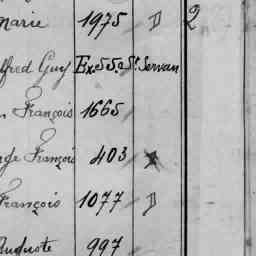 Marie 1975 D 2
lfred Guy Ex. 550 St. Servan
François 1665
ge François 403
François 1077 D
Auguste 997